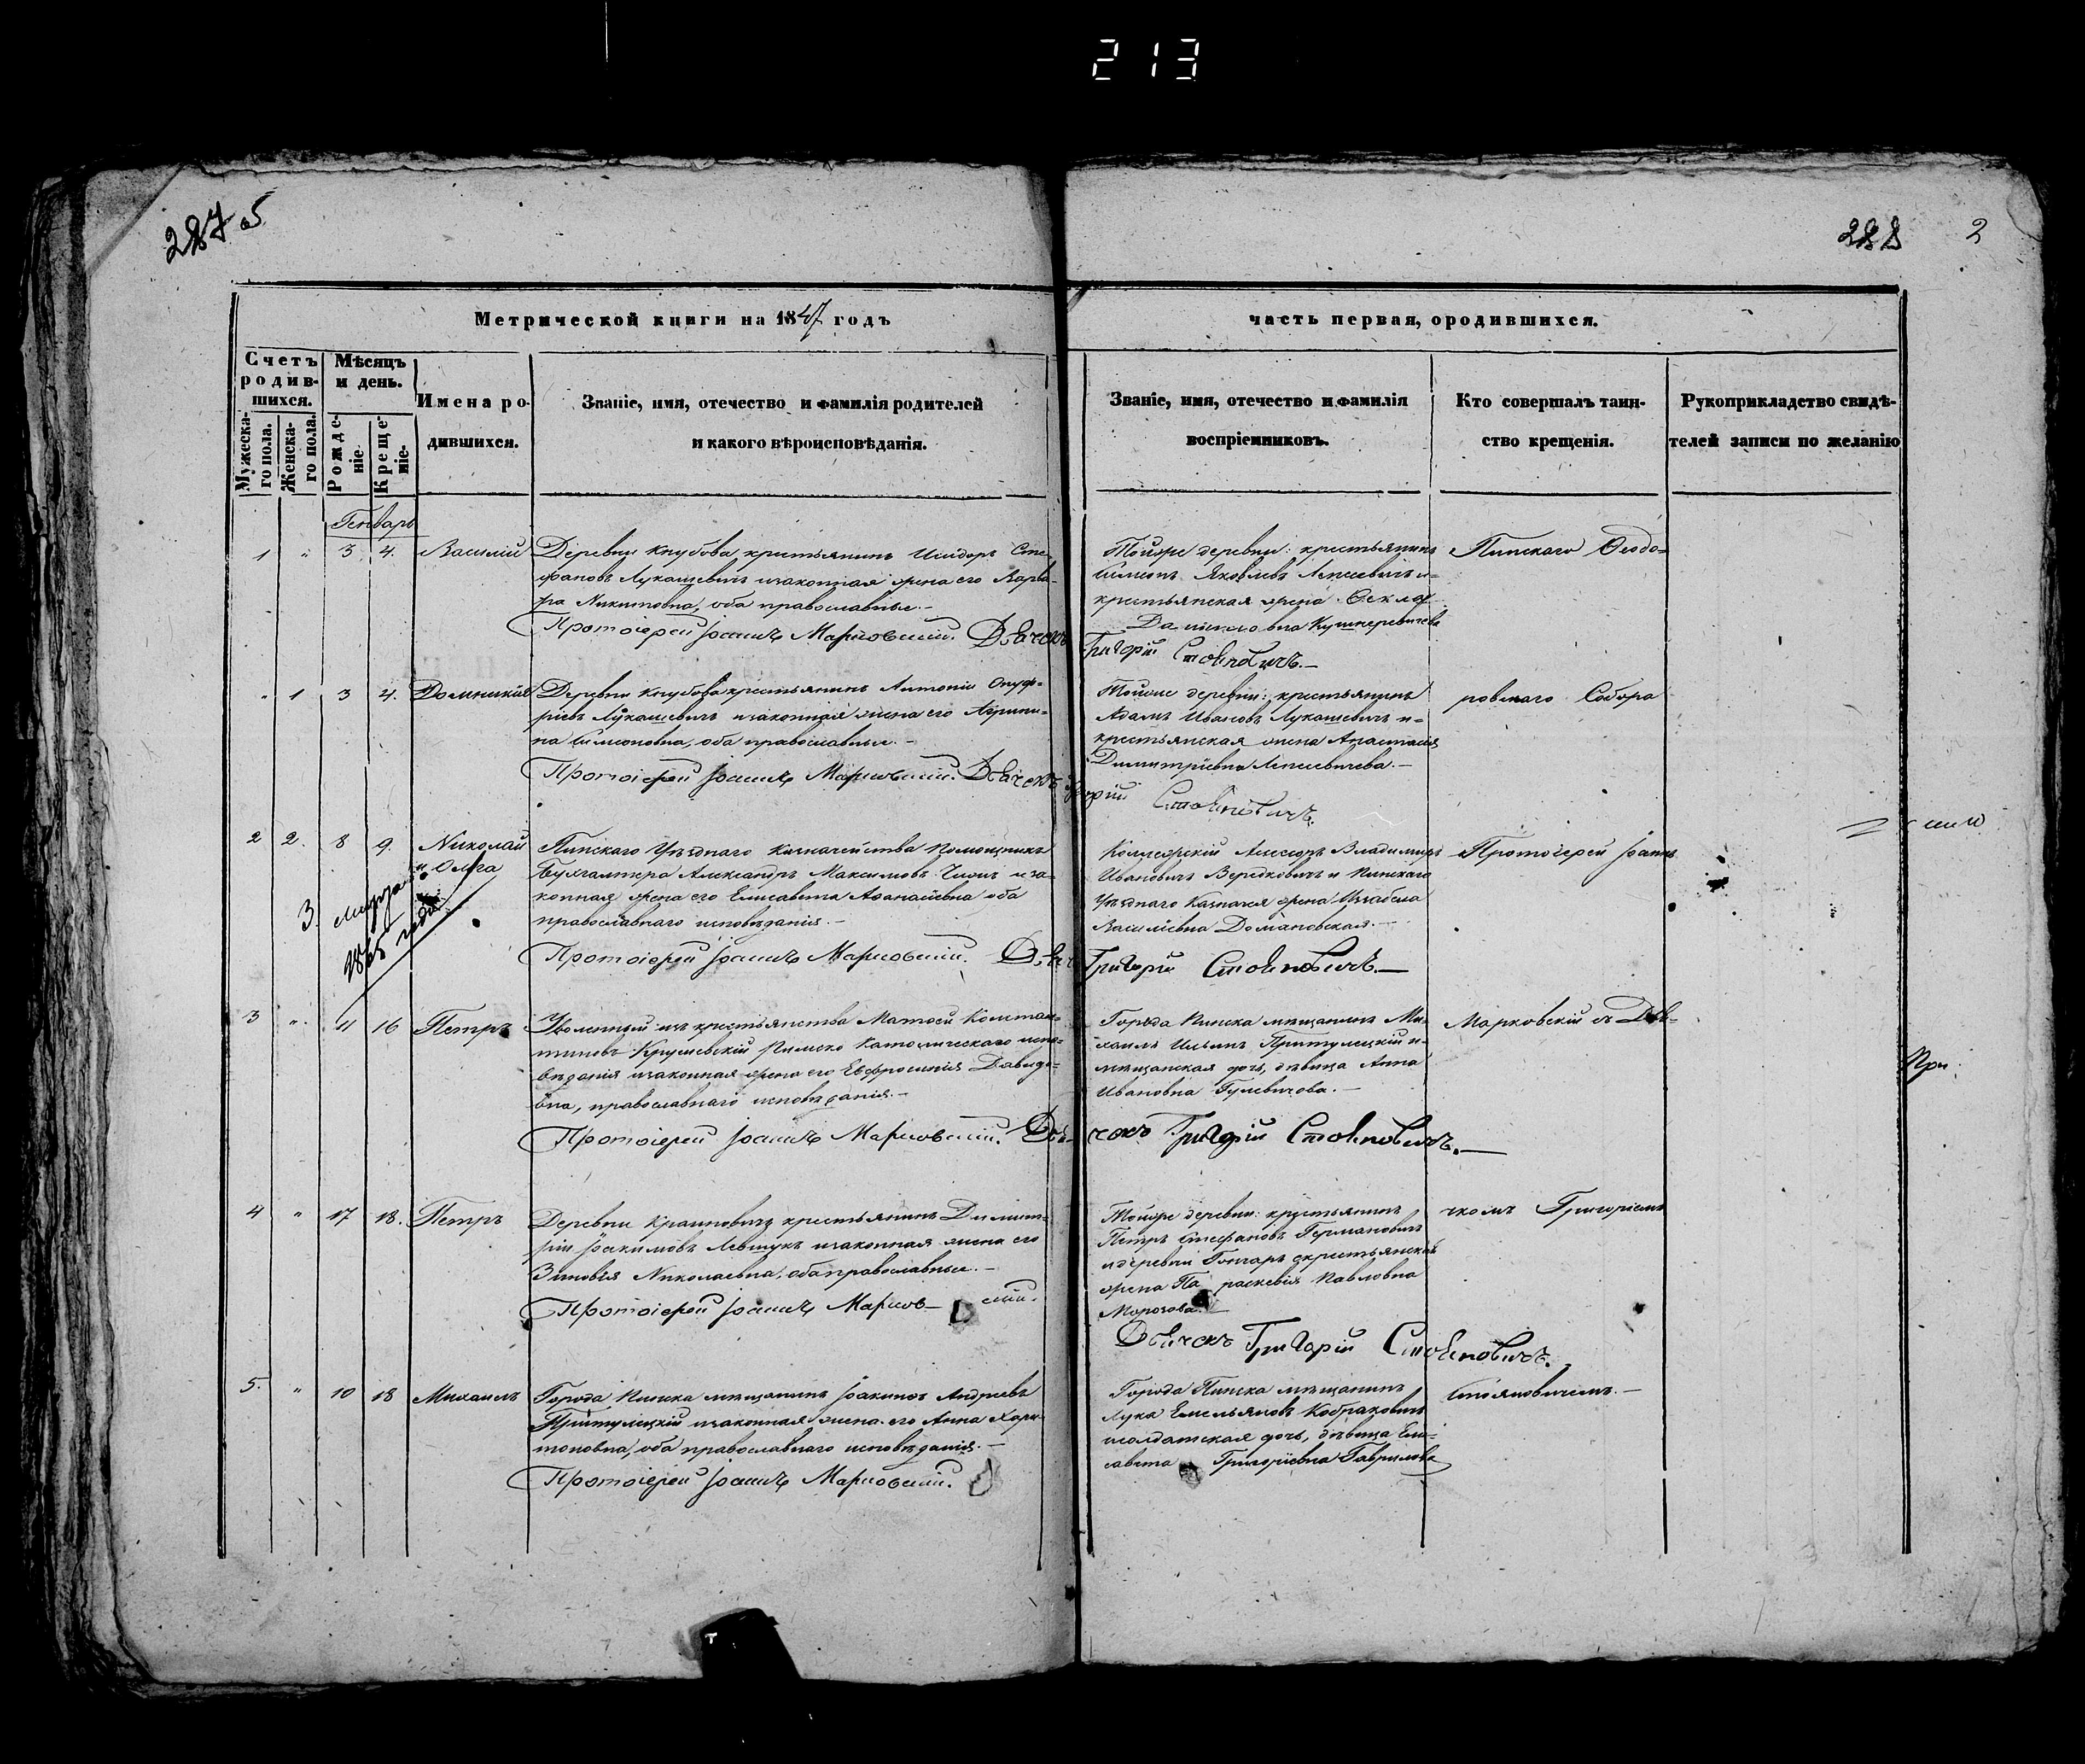 213
287 об
288 2
Метрической книги на 1847 годъ
часть первая, ородившихся.
Счетъ родив-шихся.
Мужеска-го пола.
Женска-го пола.
Мѣсяцъ и день.
Рожде-ніе.
Креще-ніе.
Имена ро-
дившихся.
Званіе, имя, отечество и фамилія родителей
и какого вѣроисповѣданія.
Званіе, имя, отечество и фамилія
воспріемниковъ.
Кто совершалъ таин-
ство крещенія.
Рукоприкладство свидѣ-
телей записи по желанію
Генварь
1 " 3 4. Василій
Деревни Кнубова крестьянинъ Исидоръ Сте-
фановъ Лукашевичъ изаконная жена его Варва-
ра Никитовна, оба православные.-
Протоіерей Іоаннъ Марковскій. Дьячекъ
Тойже деревни: крестьянинъ
Симеонъ Яковлевъ и-
крестьянская жена Фекла
Кушнеревичева
Григорій Стояновичъ.-
Пинскаго Ѳеодо-
" 1 3 4. Домникія
Деревни Кнубова крестьянинъ Антоній Онуф-
ріевъ Лукашевичъ изаконная жена его Агрипи-
на Симеоновна, оба православные.-
Протоіерей Іоаннъ Марковскій. Дьячекъ
Тойже деревни: крестьянинъ
Адамъ Ивановъ Лукашевичъ и-
крестьянская жена Анастасія
Димитріевна
Григорій Стояновичъ.
ровскаго Собора
2 2. 8 9. Николай
и Ольга
3. 1865 года
Пинскаго Уѣзднаго Казначейства Помощникъ
Бухгалтера Александръ Максимовъ иза-
конная жена его Елисавета Аѳанасіевна оба
православнаго исповѣданія.-
Протоіерей Іоаннъ Марковскій. Дьяч
Коллежскій Асессоръ Владимиръ
Ивановичъ и Пинскаго
Уѣзднаго Казначея жена Изабела
Василіевна Домановская.-
Григорій Стояновичъ.-
Протоіерей Іоаннъ
3 " 11 16 Петръ
Уволенный изъ крестьянства Матѳей Констан-
тиновъ Крушевскій Римско Католическаго испо-
вѣданія изаконная жена его Евфросинія Давидо-
вна, православнаго исповѣданія.-
Протоіерей Іоаннъ Марковскій. Дья-
Города Пинска мѣщанинъ Ми-
хаилъ Ильинъ Притулецкій и-
мѣщанская дочь, дѣвица Анна
Ивановна Гулевичова.-
чекъ Григорій Стояновичъ.-
Марковскій съ Дья-
При
4 " 17 18. Петръ
Деревни Крайновичъ крестьянинъ Димит-
рій Іоакимовъ Левшукъ изаконная жена его
Зиновія Николаевна, оба православные.-
Протоіерей Іоаннъ Марков- скій.
Тойже деревни: крестьянинъ
Петръ Стефановъ Германовичъ
идеревни Гончаръ крестьянская
жена Параскевія Павловна
Морозова.-
Дьячекъ Григорій Стояновичъ.
чкомъ Григоріемъ
5. " 10 18 Михаилъ
Города Пинска мѣщанинъ Іоакимъ Андреевъ
Притулецкій изаконная жена его Анна Хари-
тоновна, оба православнаго исповѣданія.-
Протоіерей Іоаннъ Марковскій.
Города Пинска мѣщанинъ
Лука Емельяновъ Кобраковичъ
исолдатская дочь, дѣвица Ели-
савета Григоріевна Гаврилова
Стояновичемъ.-